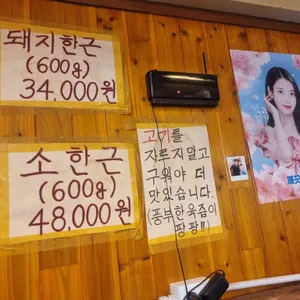 돼지한근
(600g)
34,000원
소한근
(600g)
48,000원
고기를
자르지말고
구워야 더
맛있습니다.
(풍부한육즙이
팡팡!!)